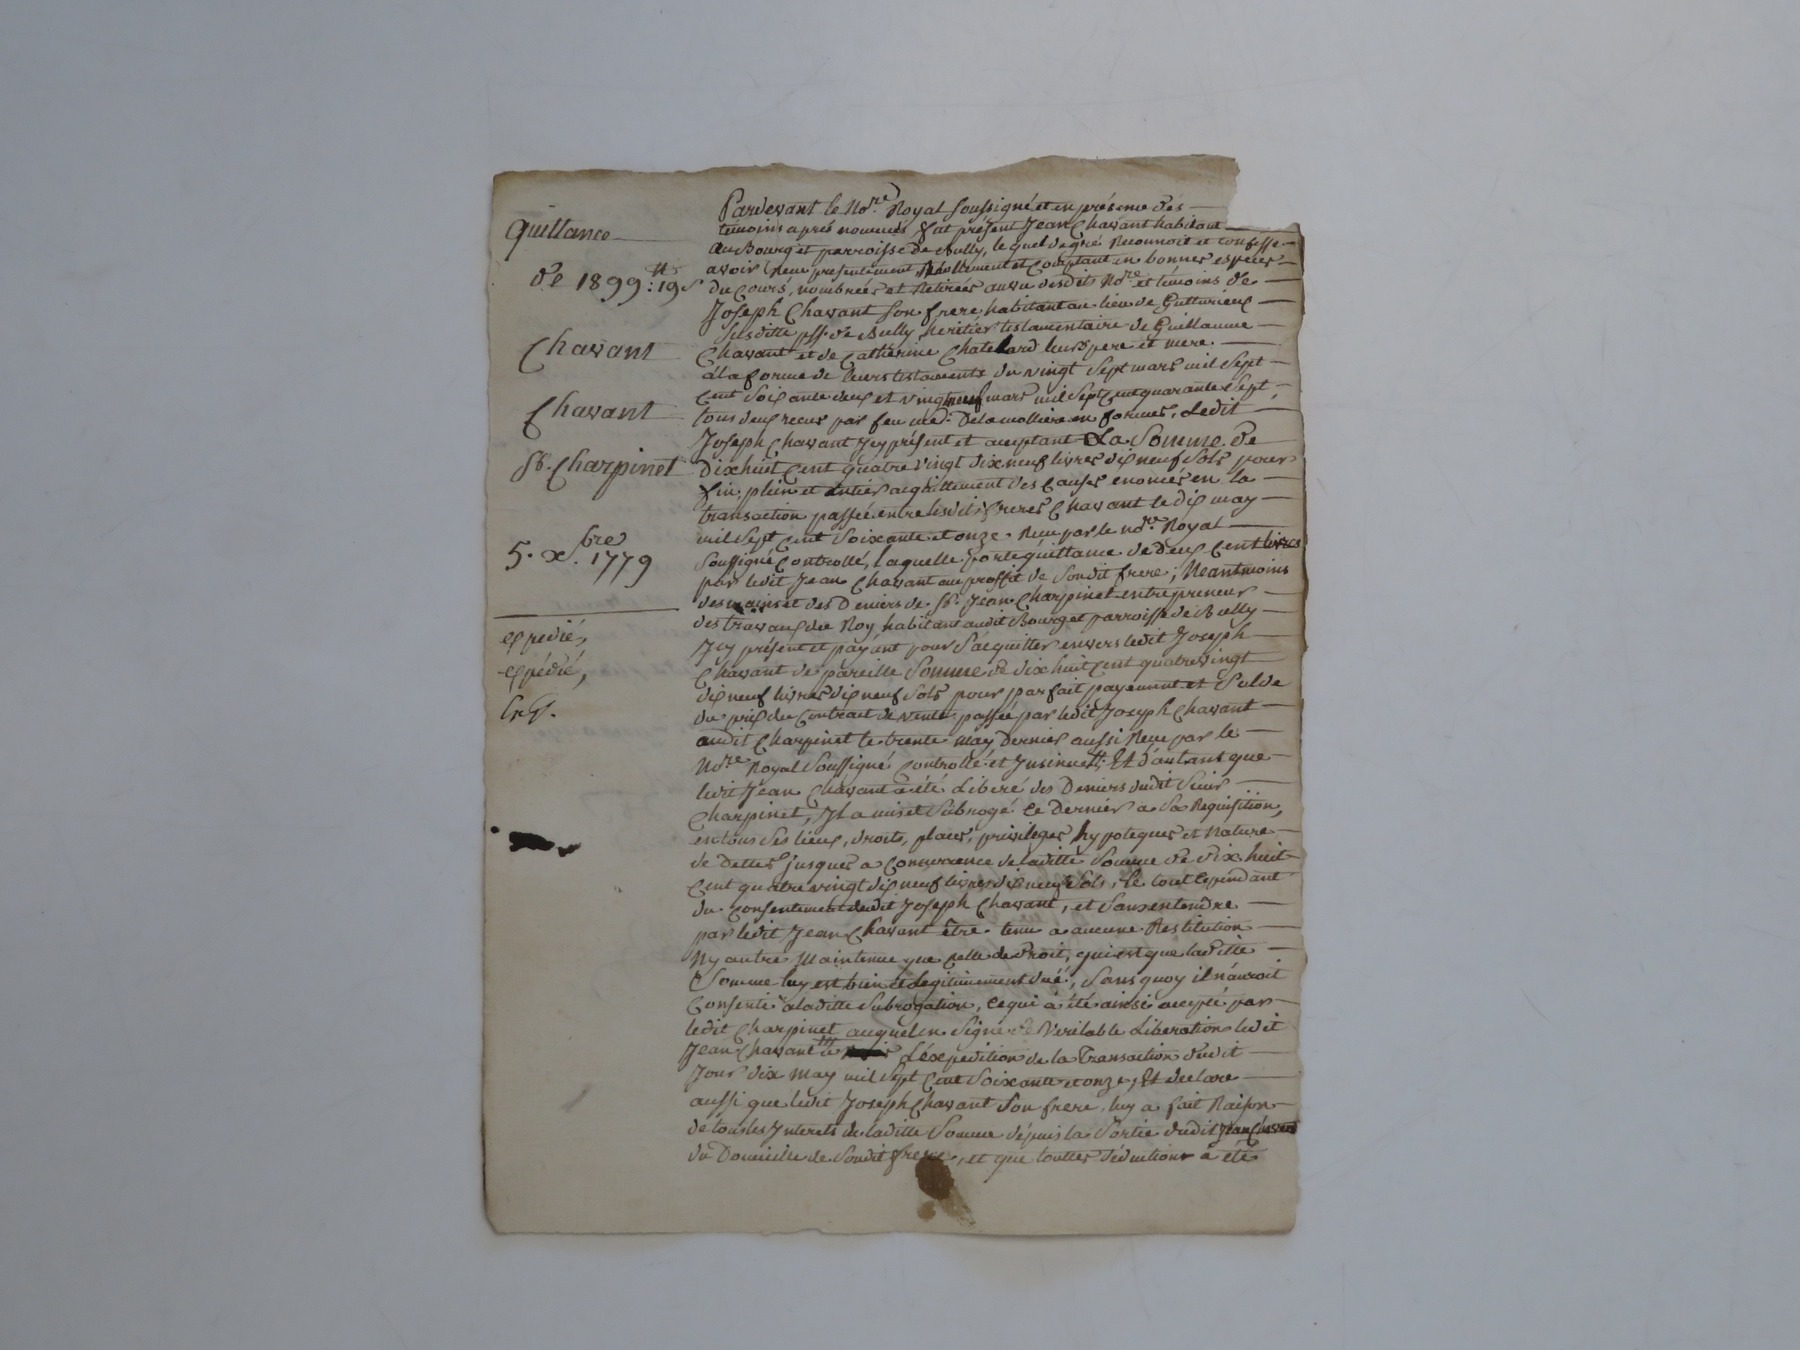 Quittance
de 1899 ₶ : 19 s
Chavant
Chavant
Sr. Charpinet
5. xbre. 1779
expedié,
expédié,
Pardevant le Nore. Royal soussigné et en présence des
témoins aprés nommés fut présent Jean Chavant habitant
au Bourg et parroisse de Bully, lequel de gré Reconnoit et confesse
avoir reçu presentement, Réellement et comptant en bonnes especes
du cours, nombrées et Retirées au vu desdits Nore. et témoins de
Joseph Chavant son frere habitant au lieu de
Susditte psse. de Bully heritier testamentaire de Guillaume
Chavant et de Catherine Chatelard leurs pere et mere
à la forme de leurs testaments du vingt sept mars mil sept
cent soixante deux et vingt neuf mars mil sept cent quarante sept,
tous deux recus par feu me. Delamolliere en formes, Ledit
Joseph Chavant Jcy présent et acceptant La Somme de
Dixhuit Cent quatre vingt dix neuf livres dix neuf sols pour
fin, plein et entier acquittement des causes enoncées en la
transaction passée entre lesdits freres Chavant le dix may
mil sept cent soixante et onze Recue par le nore. Royal
soussigné Controllé, laquelle porte quittance de deux cent livres
par ledit Jean Chavant au proffit de sondit frere; Neantmoins
des mains et des Deniers de Sr. Jean Charpinet entrepreneur
des travaux du Roy, habitant audit Bourg et parroisse de Bully
Jcy présent et payant pour s'acquitter envers ledit Joseph
Chavant de pareille Somme de dix huit cent quatre vingt
dix neuf livres dix neuf sols pour parfait payement et Solde
du prix du Contract de vente passée par ledit Joseph Chavant
audit Charpinet le trente May dernier aussi Recue par le
Nore. Royal Soussigné Controllé et Jnsinué; Et d'autant que
ledit Jean Chavant a été Libéré des Deniers dudit Sieur
Charpinet, Jl a mis et Subrogé ce dernier a Sa Requisition,
en tous ses lieux, droits, places, privileges hypoteques et Nature
de Dettes Jusques a Concurrence de laditte Somme de Dix huit
Cent quatre vingt dix neuf livres dix neuf sols, Le tout cependant
du consentement dudit Joseph Chavant, et sans entendre
par ledit Jean Chavant être tenu a aucune Restitution
Ny autre Maintenue que celle de Droit, qui est que laditte
Somme luy est bien et Legitimement düe, Sans quoy il n'auroit
Consenti a laditte Subrogation, ce qui a été ainsi accepté par
ledit Charpinet auquel en Signe de Veritable Liberation ledit
Jean Chavant a L'éxpedition de la Transaction dudit
Jour dix May mil sept Cent Soixante et onze, Et declare
aussi que ledit Joseph Chavant Son frere, luy a fait Raison
de tous les Jnterets de laditte Somme dépuis la Sortie dudit Jean Chavant
du Domicille de Sondit frere, et que touttes déductions a été